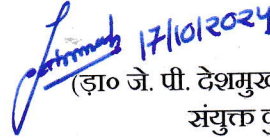 17/10/2024
(ड़ा० जे. पी. देशमुख
संयुक्त